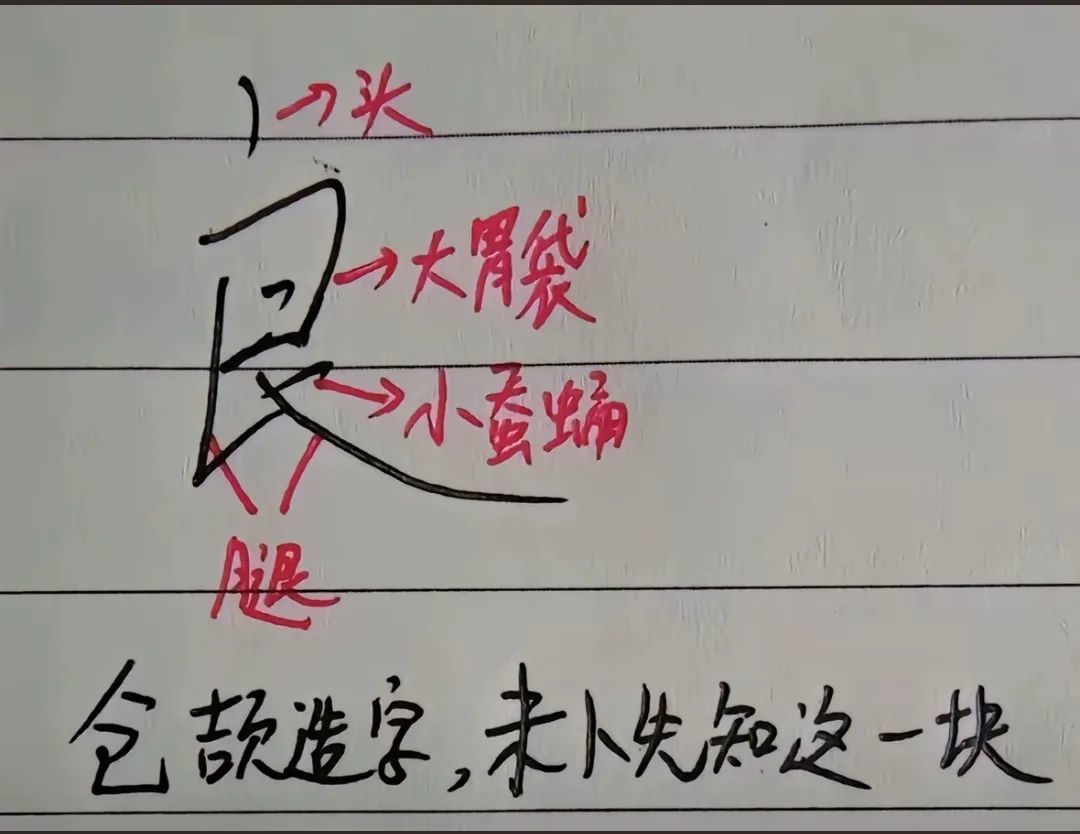 →头
良
→大胃袋
→小蚕蛹
腿
仓颉造字,未卜先知这一块